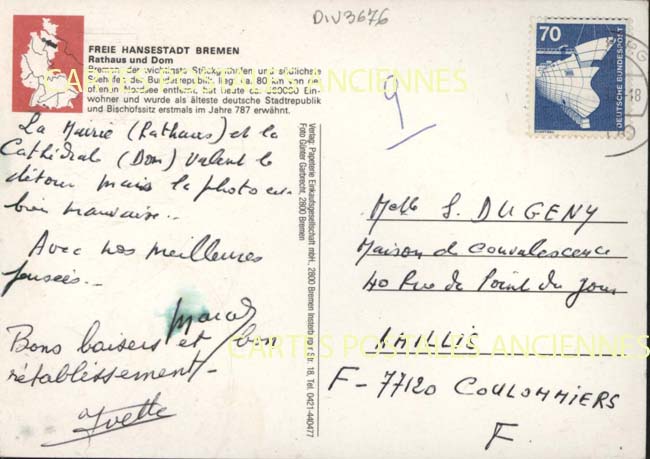 DIV3676
FREIE HANSESTADT BREMEN
Rathaus und Dom
Bremen, der wichtigste Stückguthafen und südlichste
Seehafen der Bundesrepublik, liegt ca. 80 km von der
offenen Nordsee entfernt, hat heute ca. 580000 Ein-
wohner und wurde als älteste deutsche Stadtrepublik
und Bischofssitz erstmals im Jahre 787 erwähnt.
La Mairie (Rathaus) et la
Cathédrale (Dom) valent le
détour mais la photo est
bien mauvaise..
Avec nos meilleures
pensées..
Marcel
Bons baisers et bon
rétablissement -
Yvette
Verlag: Papeterie Einkaufsgesellschaft mbH., 2800 Bremen Insterburger Str. 18, Tel. 0421-440477
Foto Günter Garbrecht, 2800 Bremen
9
70
DEUTSCHE BUNDESPOST
Melle S. DUGENY
Maison de Convalescence
40 Rue du Point du Jour
F - 77120 COULOMMIERS
F
CARTES POSTALES ANCIENNES
CARTES POSTALES ANCIENNES